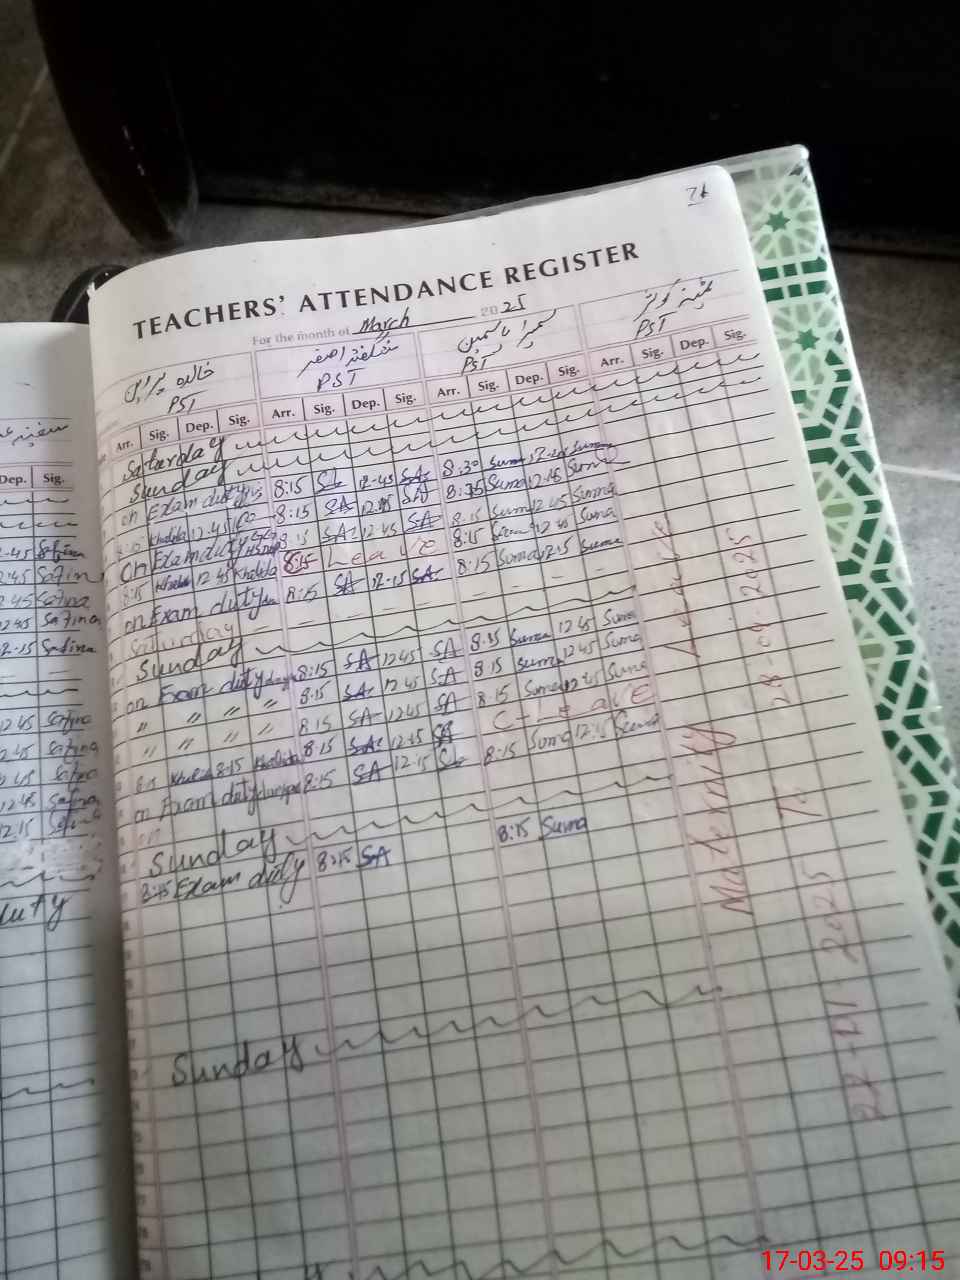 71
TEACHERS' ATTENDANCE REGISTER
For the month of March 2025
خالدہ پروین شگفتہ اصغر سمیرا یاسمین
PST PST PST PST
Arr. Sig. Dep. Sig. Arr. Sig. Dep. Sig. Arr. Sig. Dep. Sig. Arr. Sig. Dep. Sig.
Dep. Sig.
Saturday
Sunday
on Exam duty 8:15 SA 12-45 SA 8:30 Suma 12-45 Suma
Khalida 12.45 8:15 SA 12.45 SA 8:35 Suma 12.45 Suma
on Exam duty 8:15 SA 12 45 SA 8:15 Suma 12 45 Suma
8:15 Khalida 12 45 Khalida 8:15 Leave 8:15 Suma 12 45 Suma
on Exam duty 8:15 SA 12-15 SA 8:15 Suma 12-15 Suma
Saturday
Sunday
on Exam duty 8:15 SA 12 45 SA 8:35 Suma 12 45 Suma
" " " " 8:15 SA 12 45 SA 8 15 Suma 12 45 Suma
" " " " 8 15 SA 12 45 SA 8 15 Suma 12 45 Suma
8:15 Khalida 8:15 Khalida 8:15 SA 12 45 SA C-Leave
on Exam duty 8:15 SA 12.15 SA 8:15 Suma 12.15 Suma
Sunday
8:15 Exam duty 8:15 SA 8:15 Suma
Sunday
Maternity Leave
22-01-2025 To 28-04-2025
12-45 Safina
2:45 Safina
2.45 Safina
12.45 Safina
12-15 Safina
12 45 Safina
2 45 Safina
2.45 Safina
12:45 Safina
12.15 Safina
duty
17-03-25 09:15